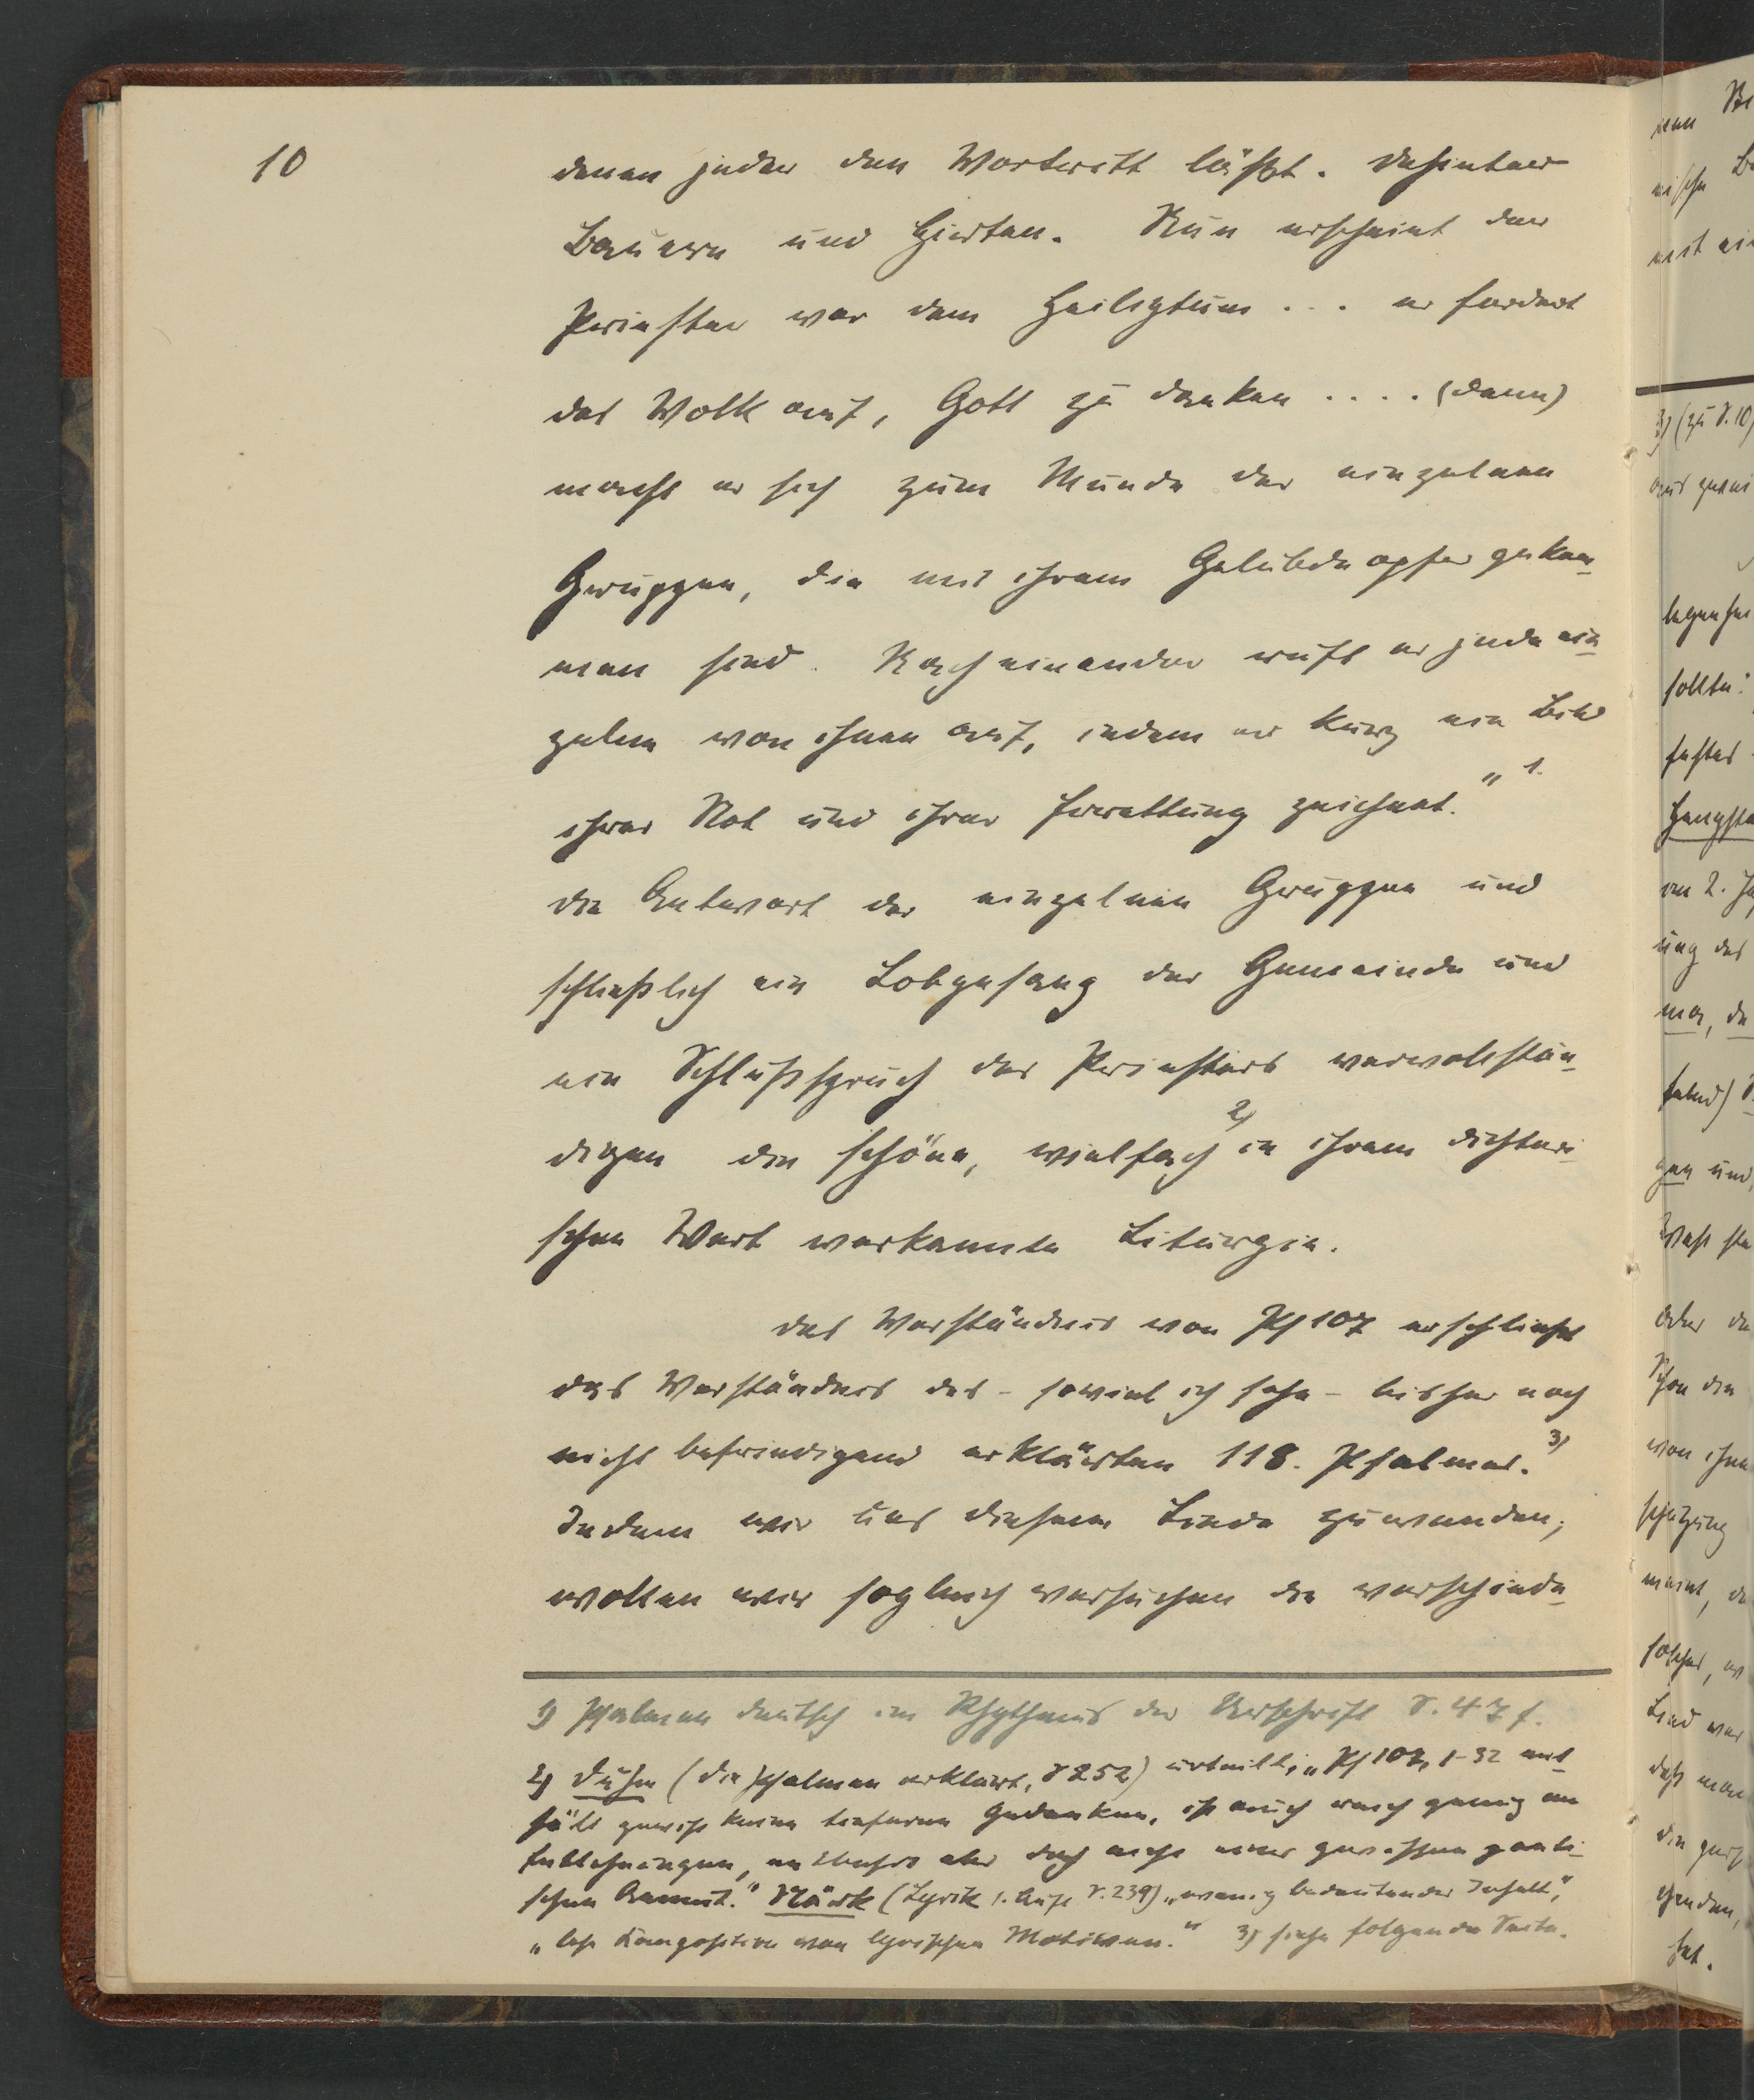 10
denen jeder den Vortritt läßt. Dahinter
Bauern und Hirten. Nun erscheint der
Priester vor dem Heiligtum ... er fordert
das Volk auf, Gott zu danken .... (dann)
macht er sich zum Munde der einzelnen
Gruppen, die mit ihrem Gelübdeopfer gekom-
men sind. Nacheinander ruft er jede ein-
zelne von ihnen auf, indem er kurz ein Bild
ihrer Not und ihrer Errettung zeichnet." 1.
Die Antwort der einzelnen Gruppen und
schließlich ein Lobgesang der Gemeinde und
ein Schlußspruch des Priesters vervollstän-
digen die schöne, vielfach 2) in ihrem dichteri-
schen Wert verkannte Liturgie.
Das Verständnis von Ps 107 erschließt
das Verständnis des - soviel ich sehe - bisher noch
nicht befriedigend erklärten 118. Psalmes. 3)
Indem wir uns diesem Liede zuwenden,
wollen wir sogleich versuchen die verschiede-
1) Psalmen deutsch im Rhythmus der Urschrift S. 47 f.
2) Duhm (Die Psalmen erklärt, S 252) urteilt: „Ps 107, 1-32 ent-
hält gewiß keine tieferen Gedanken, ist auch reich genug an
Entlehnungen, entbehrt aber doch nicht einer gewissen poeti-
schen Anmut." Stärk (Lyrik 1. Aufl S. 239) „wenig bedeutender Inhalt",
„lose Komposition von lyrischen Motiven." 3) siehe folgende Seite.
3) (zu S. 10)
sollte:
festes
ung des
gen und
oder
von ihnen
meint,
Lied
daß man
hat.